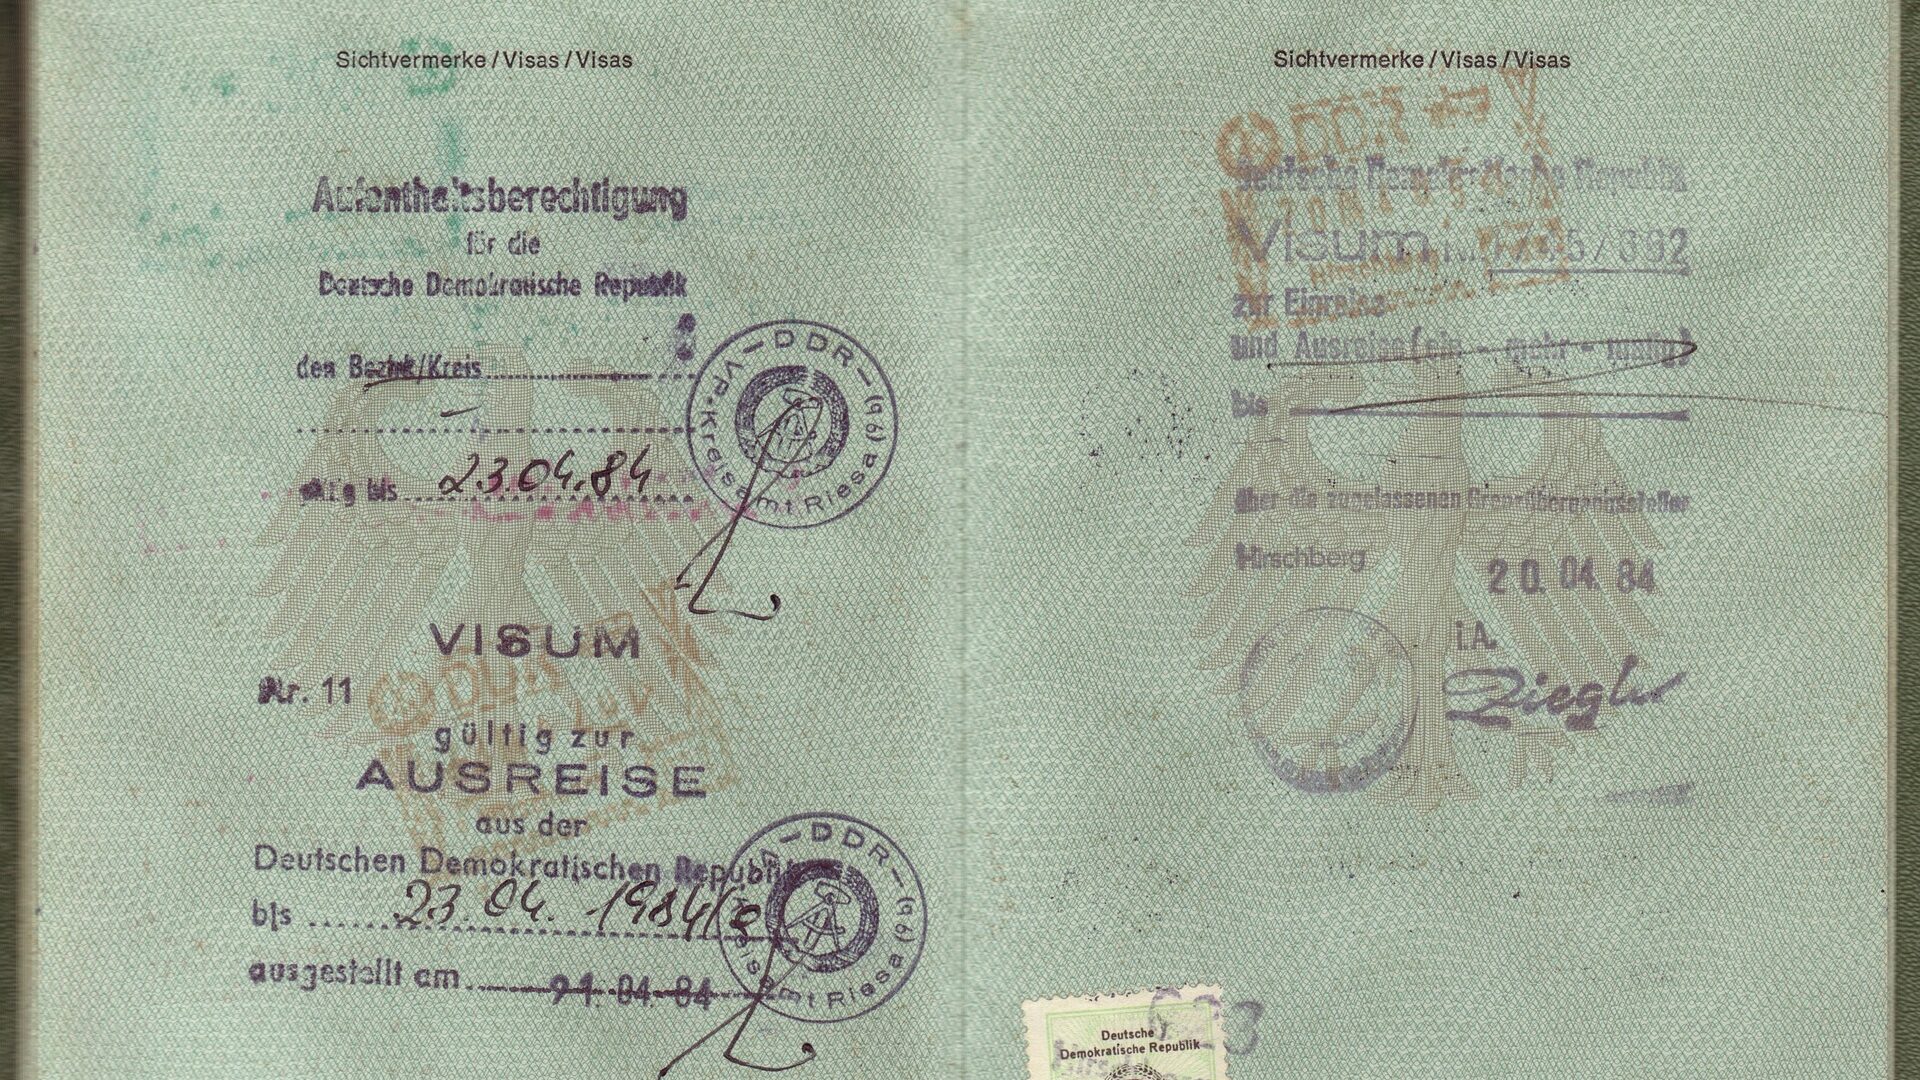 Sichtvermerke / Visas / Visas
Aufenthaltsberechtigung
für die
Deutsche Demokratische Republik
den Bezirk/Kreis
bis 23.04.84
VP-Kreisamt Riesa (96) – DDR –
VISUM
Nr. 11
gültig zur
AUSREISE
aus der
Deutschen Demokratischen Republik
bis 23.04.1984
ausgestellt am 21.04.84
DDR – (96)
amt Riesa
Sichtvermerke / Visas / Visas
DDR
Deutsche Demokratische Republik
Visum
zur Einreise
und Ausreise (ein - mehr - malig)
bis
über die zugelassenen Grenzübergangsstellen
Hirschberg
20.04.84
i.A.
Ziegler
Deutsche
Demokratische Republik